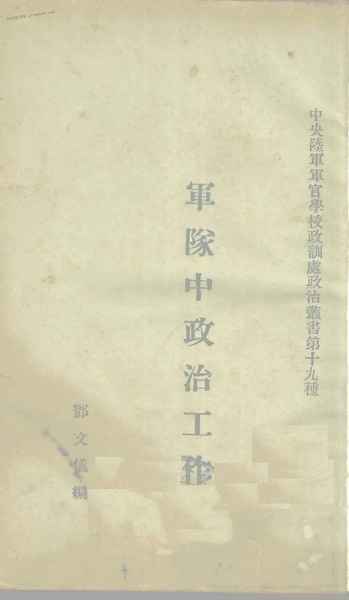 中央陸軍軍官學校政訓處政治叢書第十九種
軍隊中政治工作
鄧文儀編